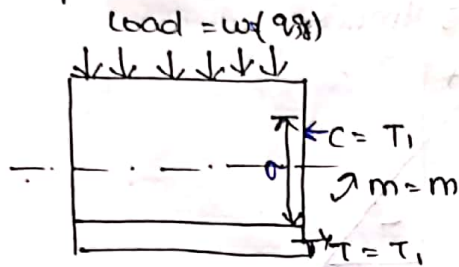 Load = w(q,g)
C = T₁
m = m
T = T₁